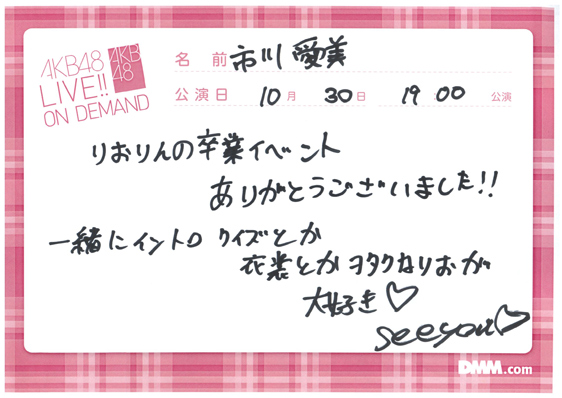 AKB48
LIVE!!
ON DEMAND
AKB
48
名 前 市川 愛美
公演日 10月 30日 19 00 公演
りおりんの卒業イベント
ありがとうございました!!
一緒にイントロ クイズとか
衣装とかヲタクなりおが
大好き♡
see you♡
DMM.com